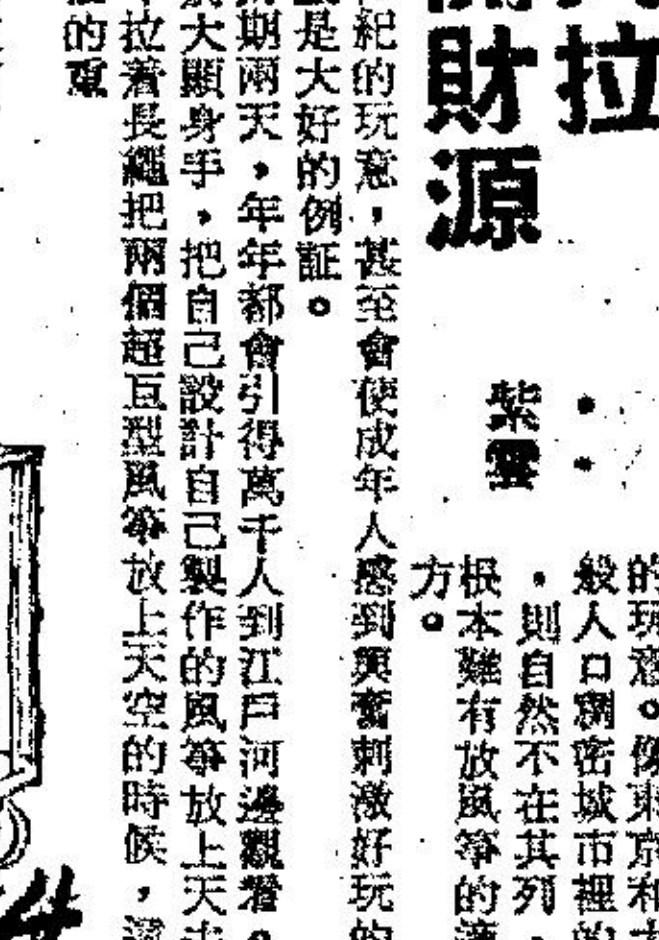 拉
財源
紫雲
的玩意。像東京和大
般人口稠密城市裡的
，則自然不在其列，
根本難有放風箏的
方。
紀的玩意，甚至會使成年人感到興奮刺激好玩的
是大好的例証。
期兩天，年年都會引得萬千人到江戶河邊觀看。
大顯身手，把自己設計自己製作的風箏放上天去
拉着長繩把兩個超巨型風箏放上天空的時候，
的重